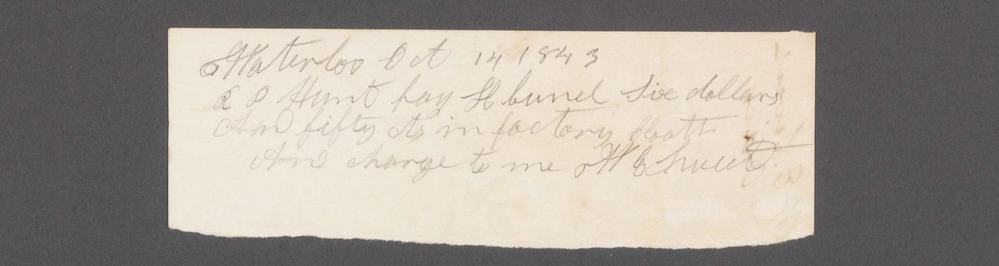 Waterloo Oct 14 1843
R P Hunt pay H bunel Six dollars
And fifty cts in factory Cloth
And charge to me W E Sweet